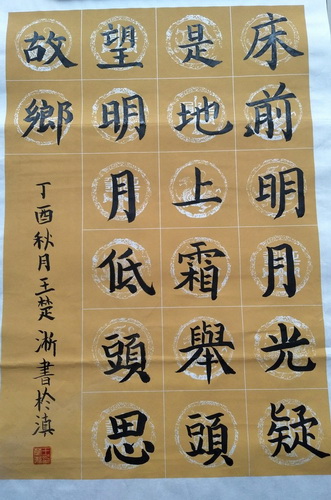 床前明月光疑
是地上霜舉頭
望明月低頭思
故鄉
丁酉秋月王楚淅書於滇